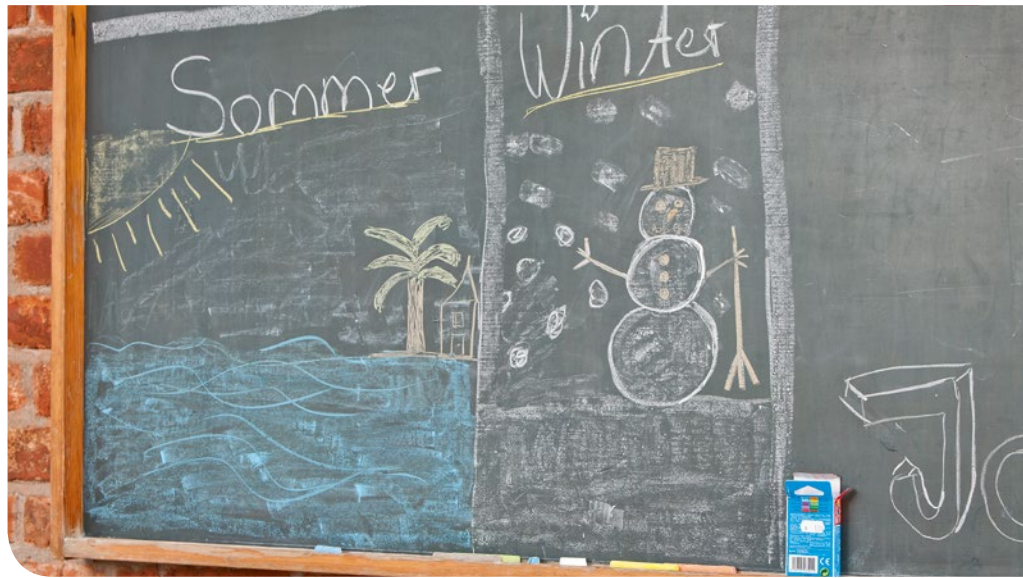 Sommer
Winter
J
CE